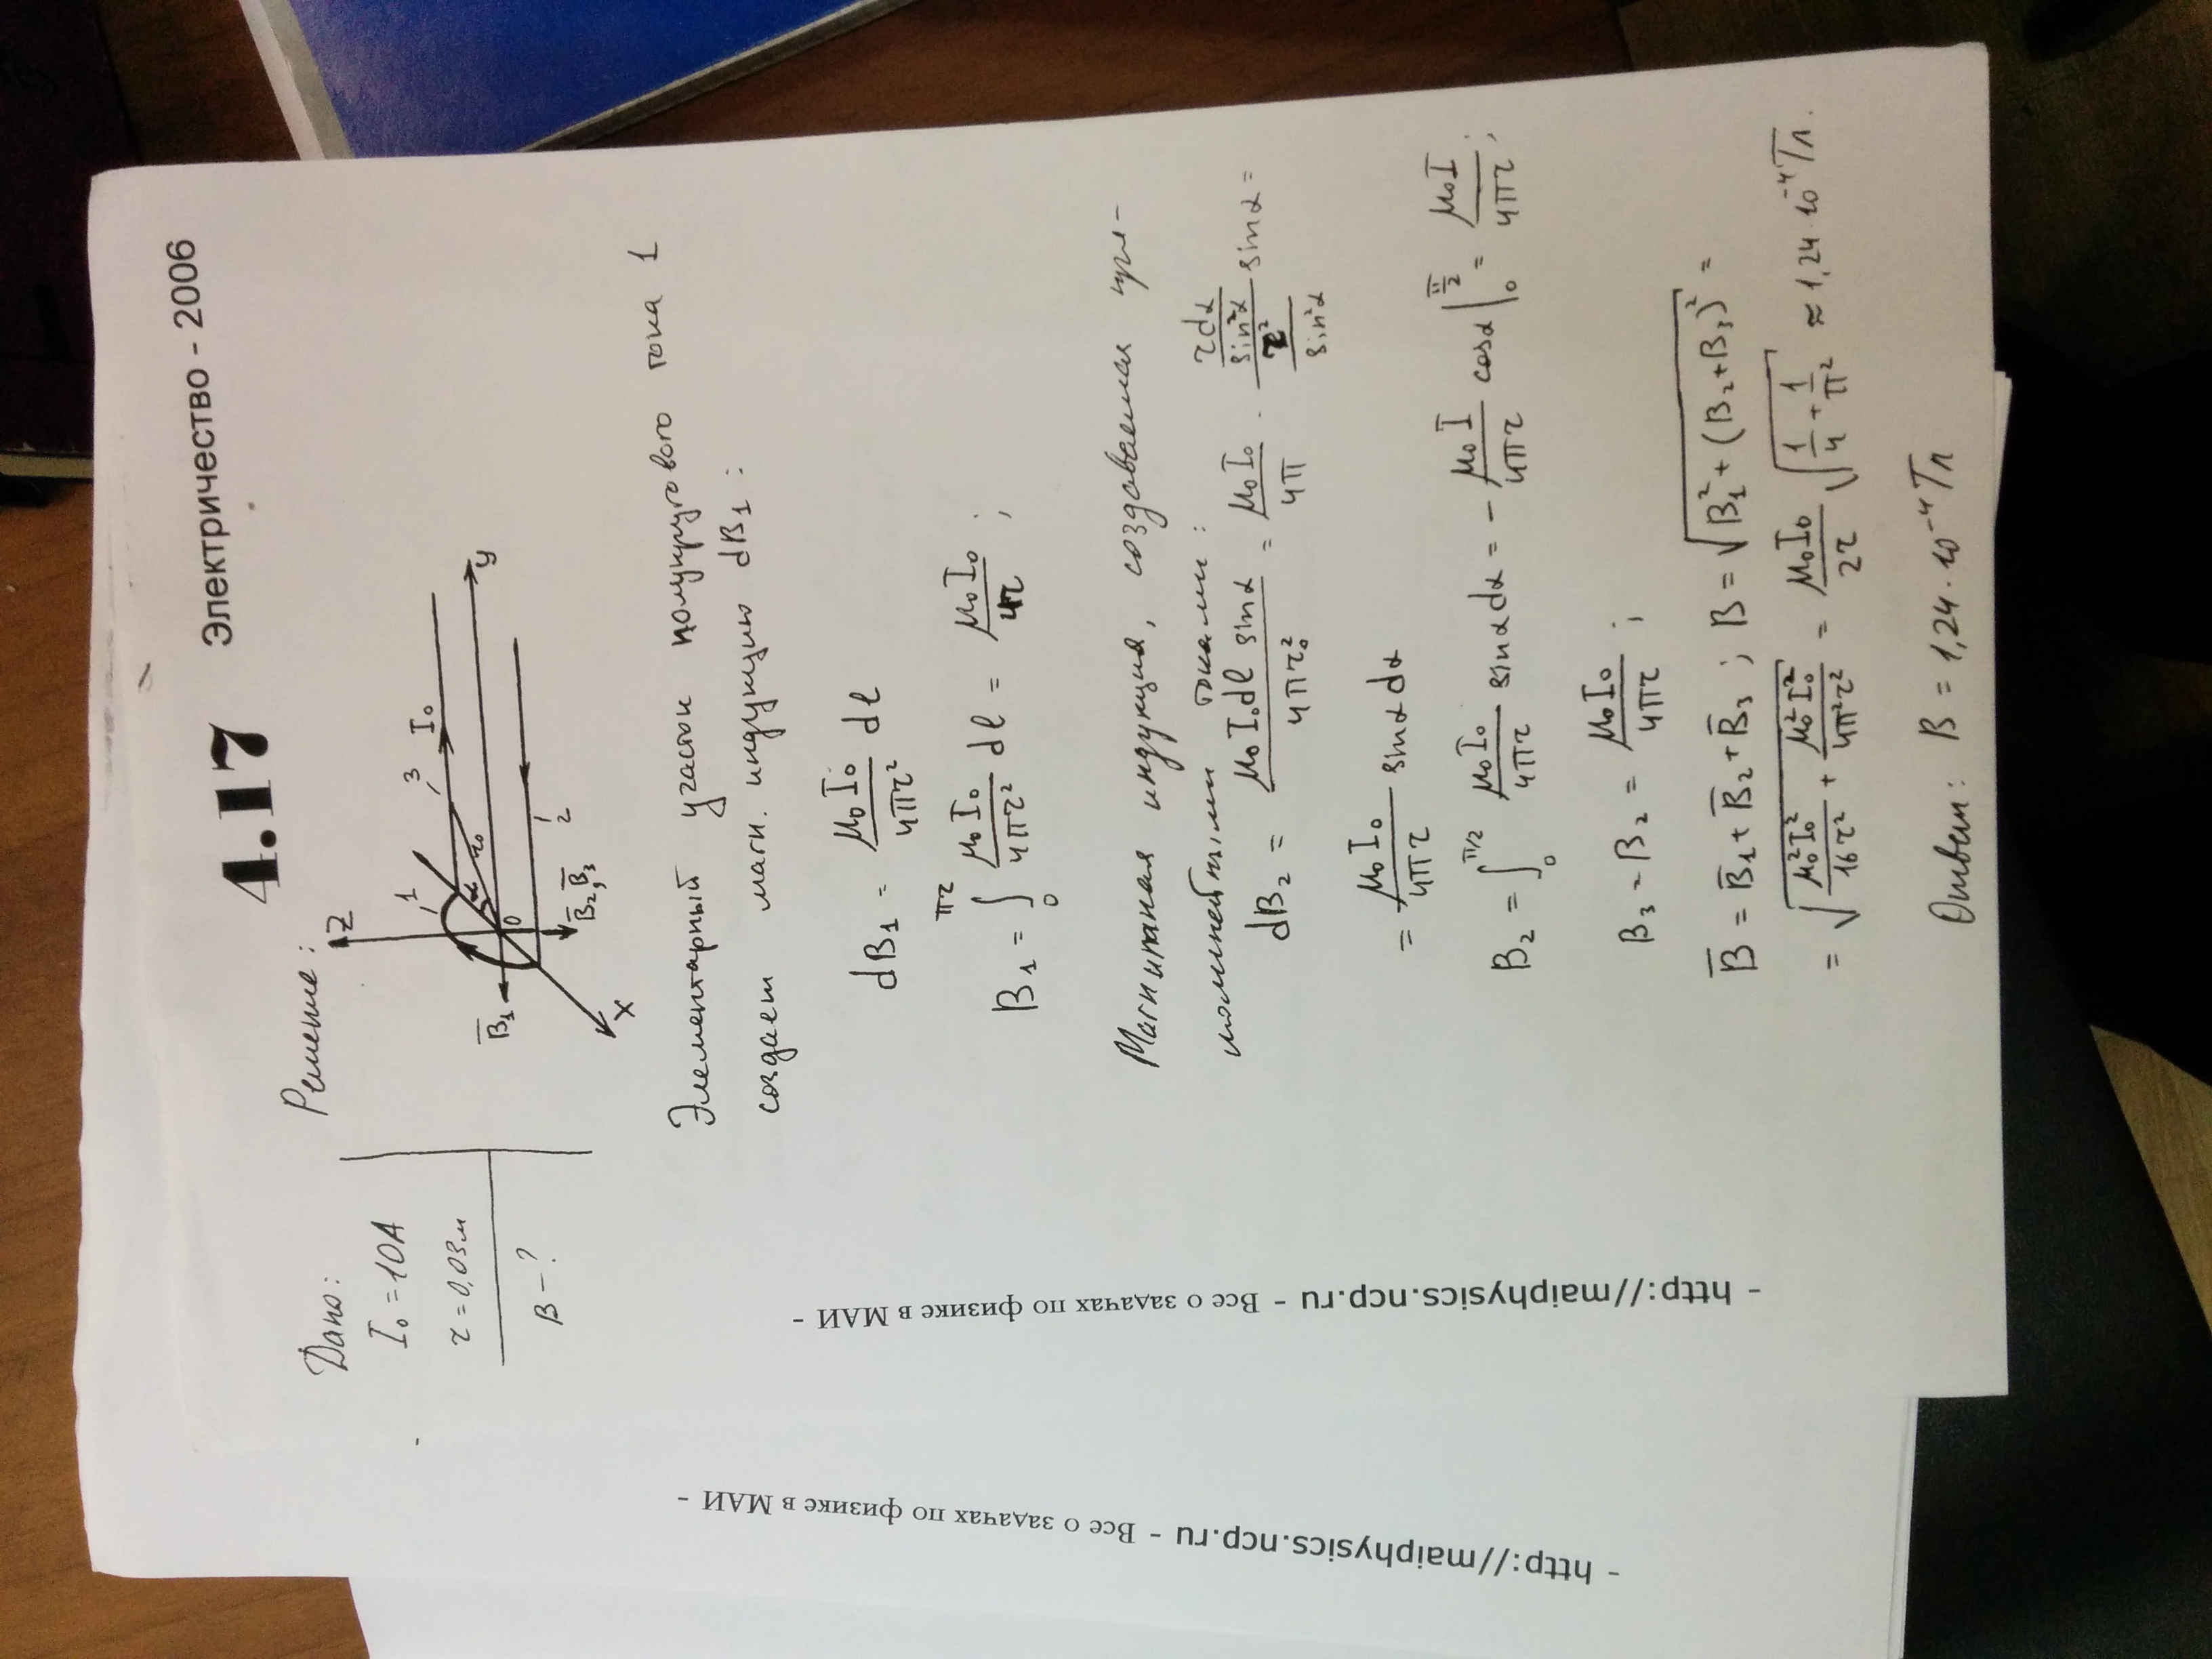 4.17 Электричество - 2006
Дано:
I₀ = 10А
r = 0,03м
B - ?
Решение:
Z
1
3
I₀
y
α
r₀
0
B̅₁
B̅₂,B̅₃
2
x
Элементарный участок полукругового тока 1
создает магн. индукцию dB₁:
dB₁ = μ₀I₀/4πr² dl
B₁ = ∫₀^πr μ₀I₀/4πr² dl = μ₀I₀/4r ;
Магнитная индукция, создаваемая пря-
молинейными токами:
dB₂ = μ₀I₀dl sinα/4πr₀² = μ₀I₀/4π · (rdα/sin²α)/(r²/sin²α) sinα =
= μ₀I₀/4πr sinα dα
B₂ = ∫₀^π/2 μ₀I₀/4πr sinα dα = - μ₀I/4πr cosα |₀^π/2 = μ₀I/4πr ;
B₃ = B₂ = μ₀I₀/4πr ;
B̅ = B̅₁ + B̅₂ + B̅₃ ; B = √(B₁² + (B₂+B₃)²) =
= √(μ₀²I₀²/16r² + μ₀²I₀²/4π²r²) = μ₀I₀/2r √(1/4 + 1/π²) ≈ 1,24·10⁻⁴Тл.
Ответ: B = 1,24·10⁻⁴Тл
- http://maiphysics.ncp.ru - Все о задачах по физике в МАИ -
- http://maiphysics.ncp.ru - Все о задачах по физике в МАИ -